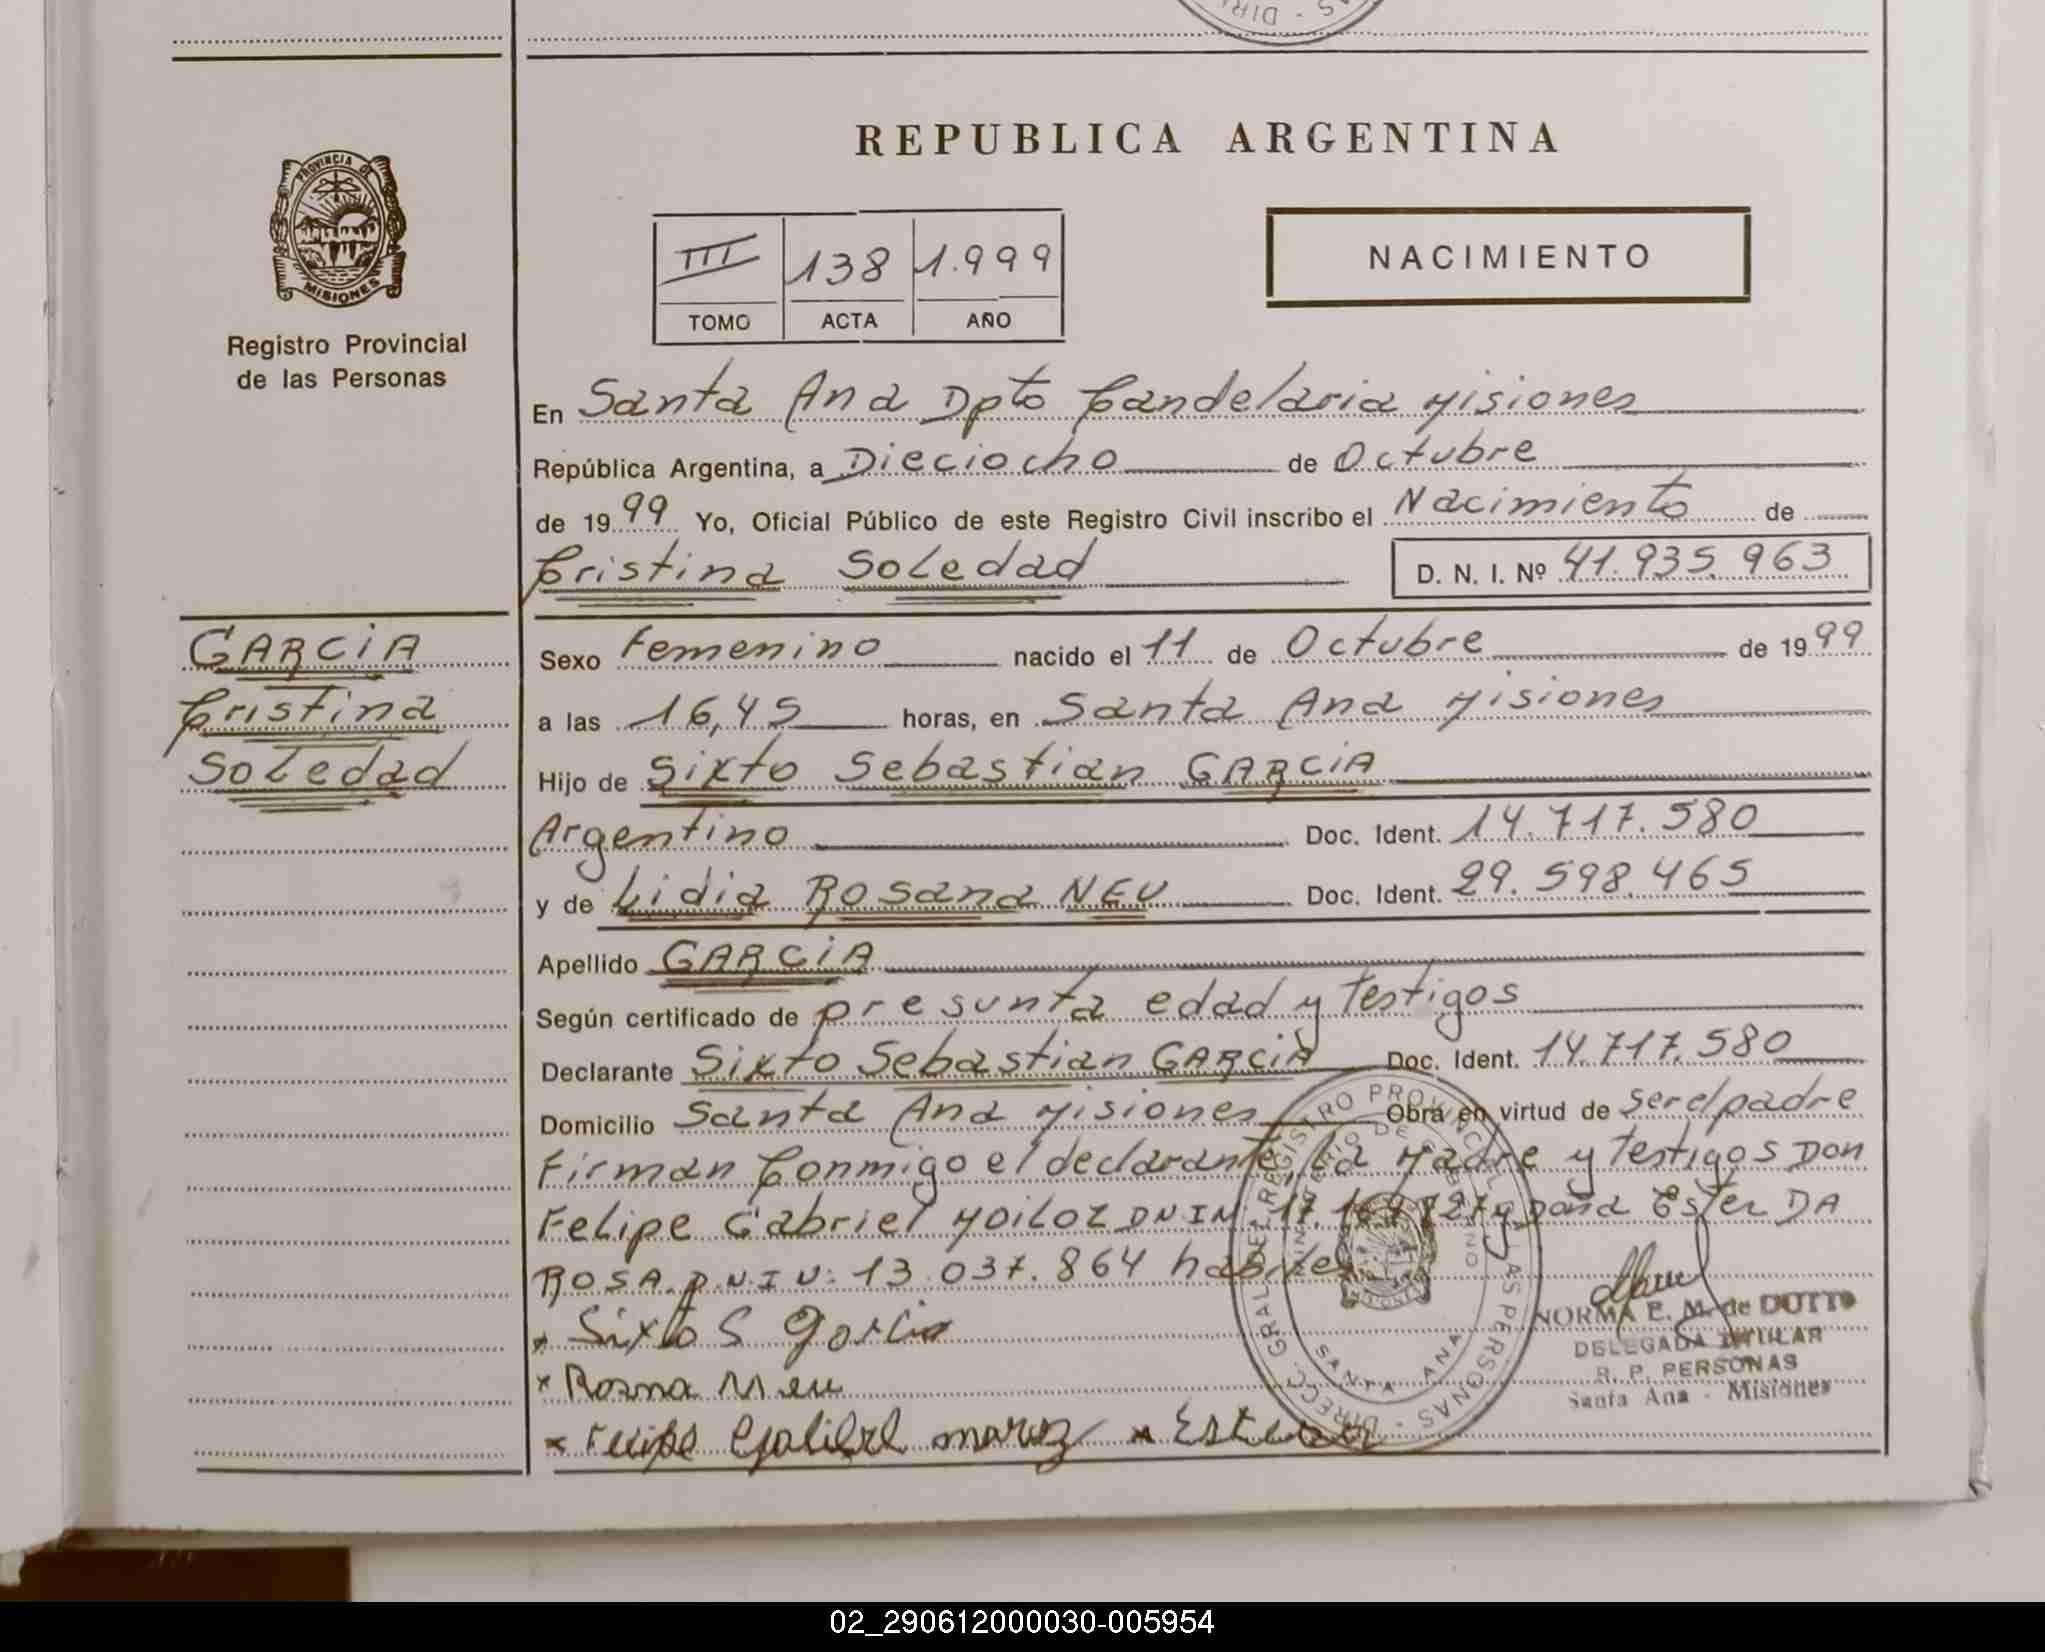 REPUBLICA ARGENTINA
PROVINCIA DE
MISIONES
Registro Provincial
de las Personas
III 138 1.999
TOMO ACTA AÑO
NACIMIENTO
En Santa Ana Dpto Candelaria Misiones
República Argentina, a Dieciocho de Octubre
de 1999 Yo, Oficial Público de este Registro Civil inscribo el Nacimiento de
Cristina Soledad D. N. I. Nº 41.935.963
GARCIA
Cristina
Soledad
Sexo Femenino nacido el 11 de Octubre de 1999
a las 16,45 horas, en Santa Ana Misiones
Hijo de Sixto Sebastian GARCIA
Argentino Doc. Ident. 14.717.580
y de Lidia Rosana NEU Doc. Ident. 29.598.465
Apellido GARCIA
Según certificado de presunta edad y Testigos
Declarante Sixto Sebastian GARCIA Doc. Ident. 14.717.580
Domicilio Santa Ana Misiones Obra en virtud de ser el padre
Firman Conmigo el declarante, la Madre y testigos Don
Felipe Gabriel DNI Nº 17. y Doña Ester DA
ROSA D.N.I Nº 13.037.864 habiles
x Sixto S Garcia
x Rosana Neu
x Felipe Gabriel x Ester
DIRECC. GRAL. DEL REGISTRO PROVINCIAL DE LAS PERSONAS
MINISTERIO DE GOBIERNO
SANTA ANA
NORMA E. M. de DUTTO
DELEGADA TITULAR
R. P. PERSONAS
Santa Ana - Misiones
02_290612000030-005954